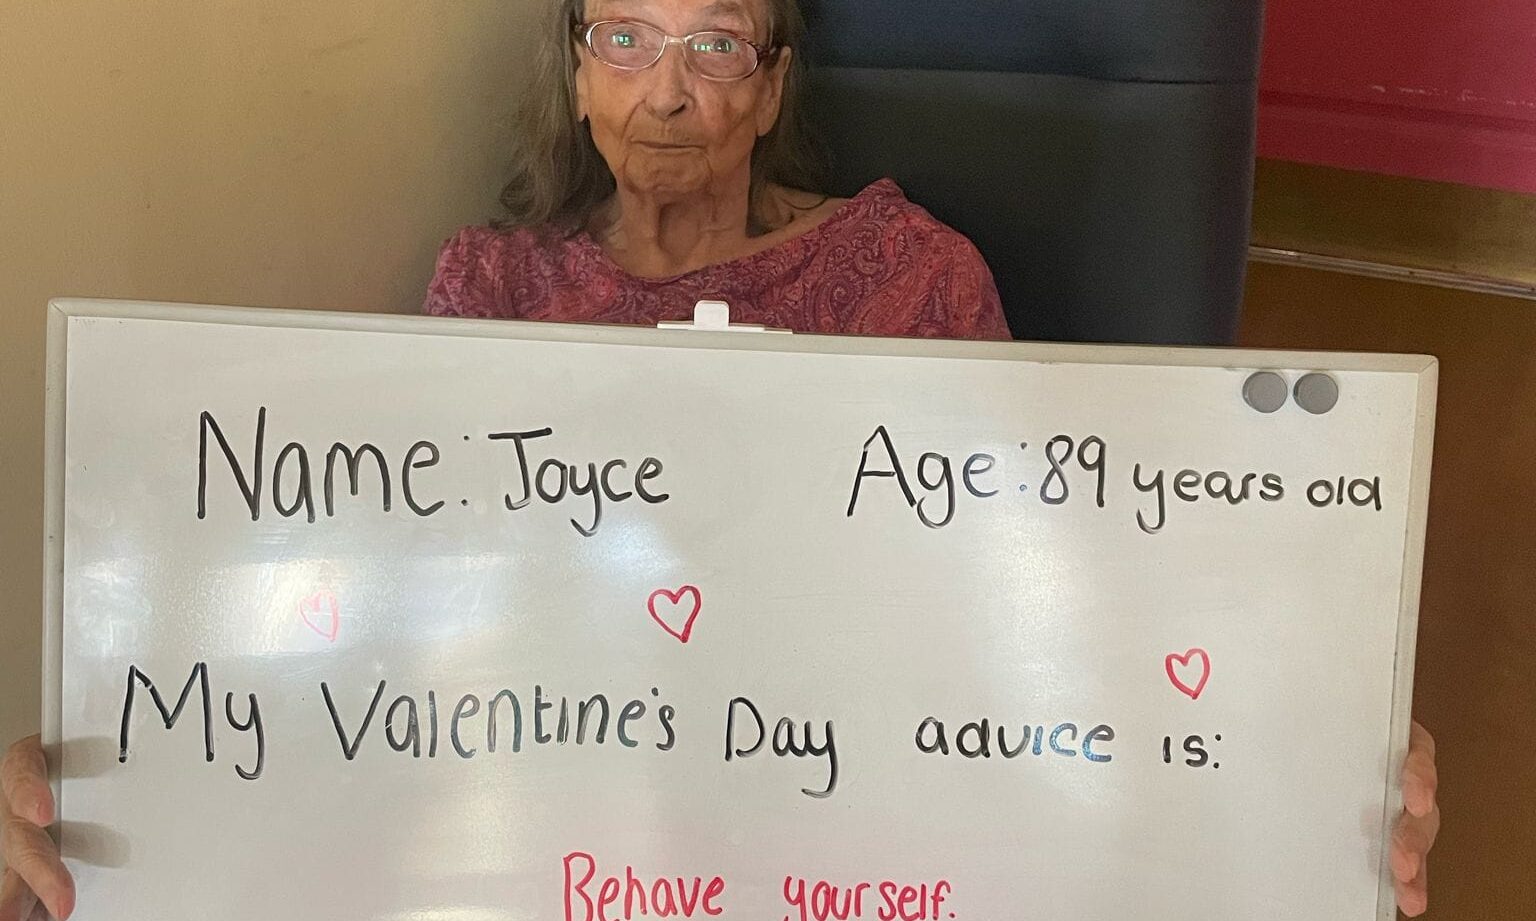 Name: Joyce Age: 89 years old
My Valentine's Day advice is:
Behave yourself.